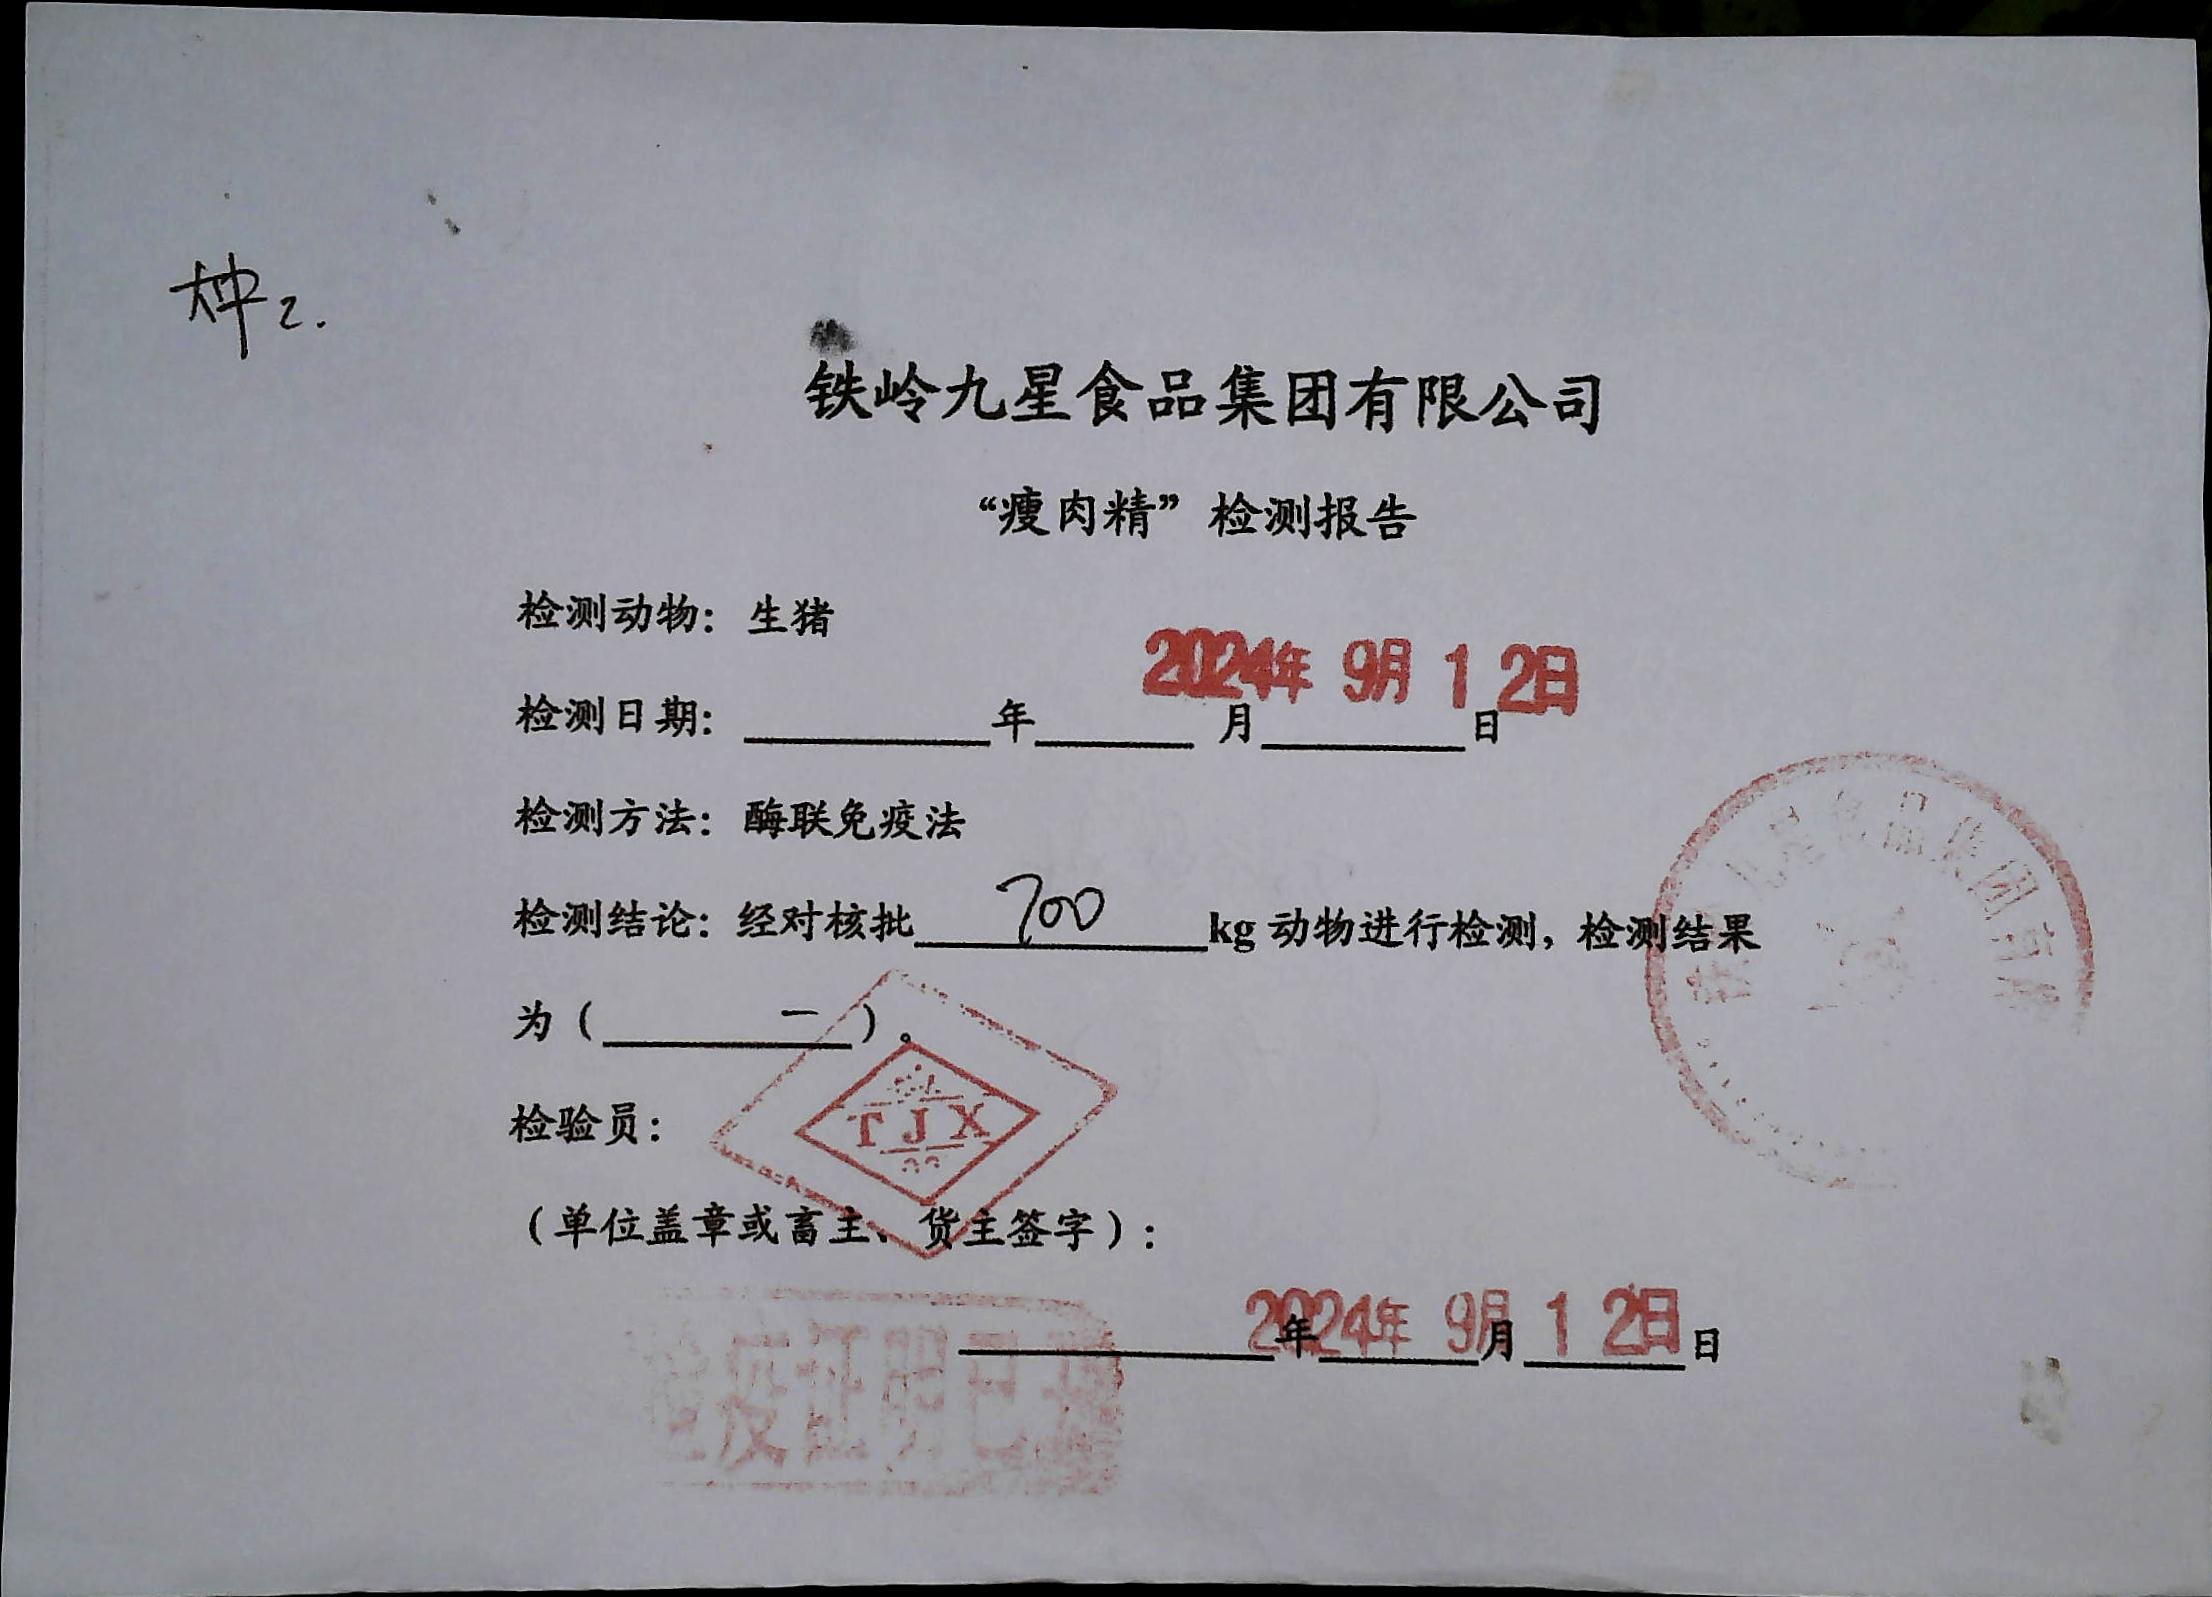 铁岭九星食品集团有限公司
“瘦肉精”检测报告
检测动物：生猪
2024年 9月 12日
检测日期：年 月 日
检测方法：酶联免疫法
检测结论：经对核批 700 kg 动物进行检测，检测结果
为（ 一 ）。
检验员：
TJX
（单位盖章或畜主、货主签字）：
2024年 9月 12日
年 月 日
九星食品集团有限
检疫证明已